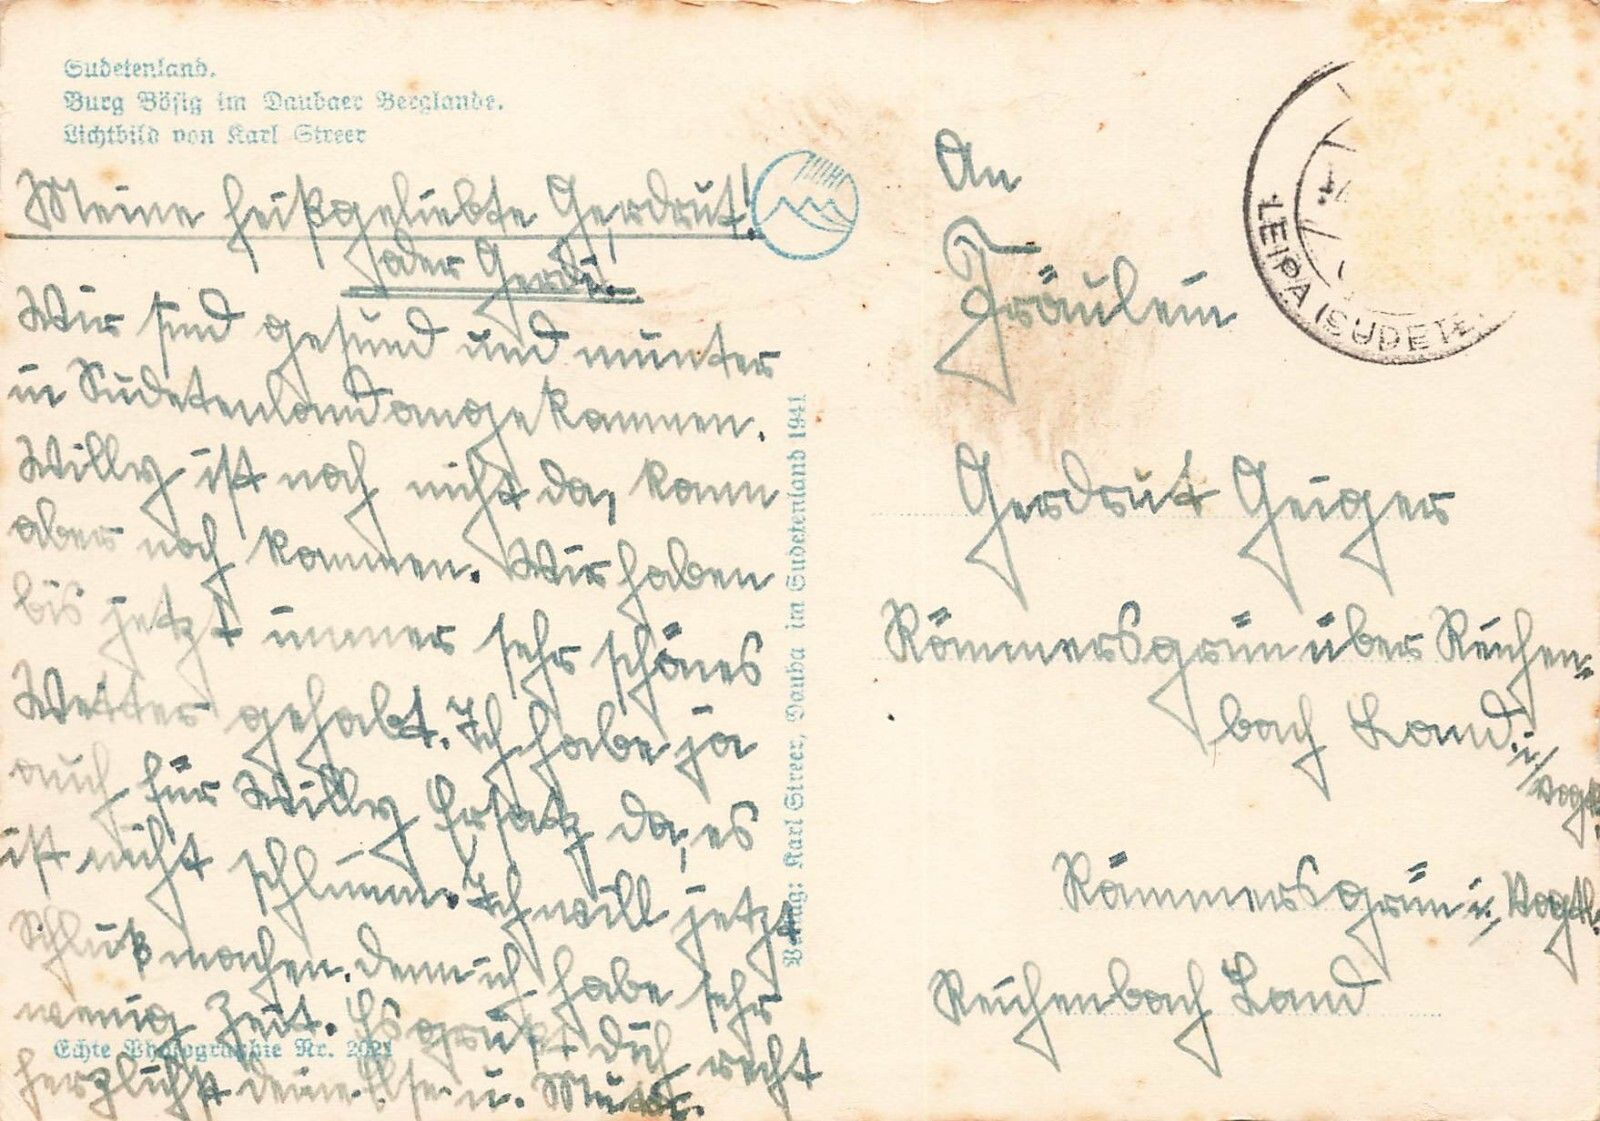 Sudetenland.
Burg Bösig im Daubaer Berglande.
Lichtbild von Karl Streer
Meine heißgeliebte Gerdrut!
oder Gerdi.
Wir sind gesund und munter
in Sudetenland angekommen.
Willy ist noch nicht da, kann
aber noch kommen. Wir haben
bis jetzt immer sehr schönes
Wetter gehabt. Ich habe ja
auch für Willy Ersatz da, es
ist nicht schlimm. Ich will jetzt
Schluß machen, denn ich habe sehr
wenig Zeit. Es grüßt dich recht
herzlichst deine Else u. Mutti.
Echte Photographie Nr. 2021
Verlag: Karl Streer, Dauba im Sudetenland 1941
LEIPA (SUDETE
An
Fräulein
Gerdrut Geiger
Römmersgrün über Reichen-
bach Land. i./Vogtl.
Römmersgrün i./Vogtl.
Reichenbach Land